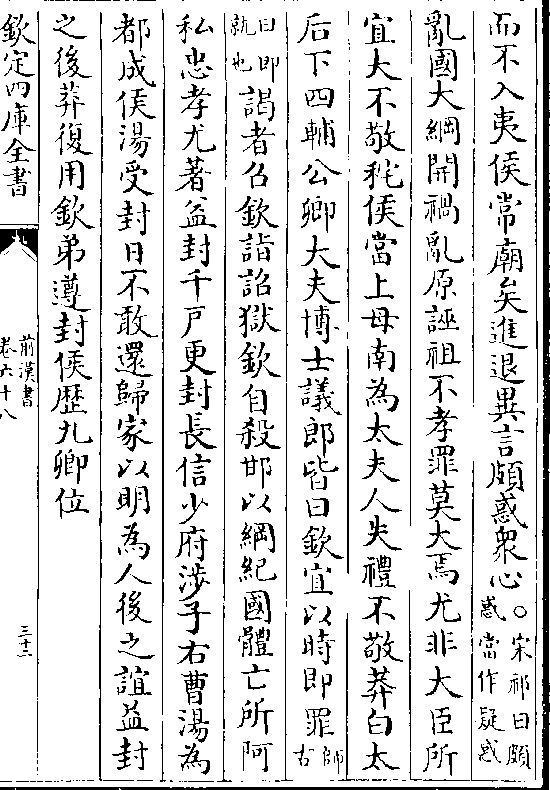 而不入夷侯常廟矣進退異言頗惑衆心○宋祁曰頗
惑當作疑惑
亂國大綱開禍亂原誣祖不孝罪莫大焉尤非大臣所
宜大不敬秺侯當上母南為太夫人失禮不敬莽白太
后下四輔公卿大夫博士議郎皆曰欽宜以時即罪師
古
曰即
就也謁者召欽詣詔獄欽自殺邯以綱紀國體亡所阿
私忠孝尤著益封千戸更封長信少府涉子右曹湯為
都成侯湯受封日不敢還歸家以明為人後之誼益封
之後莽復用欽弟遵封侯歴九卿位
欽定四庫全書
前漢書
卷六十八
三十二